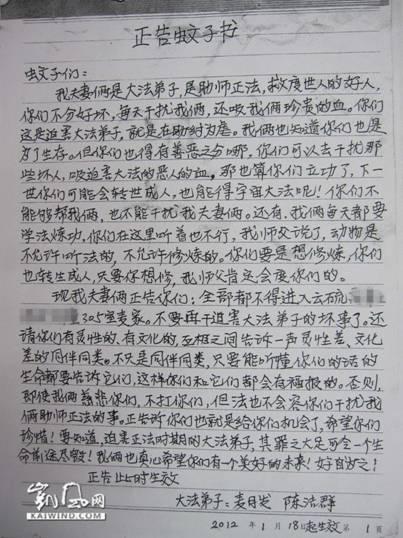 正告蚊子书
蚊子们:
我夫妻俩是大法弟子,是助师正法,救度世人的好人,
你们不分好坏,每天干扰我俩,还吸我俩珍贵的血。你们
这是迫害大法弟子,就是在助纣为虐。我俩也知道你们也是
为了生存。但你们也得有善恶之分哪,你们可以去干扰那
些坏人,吸迫害大法的恶人的血。那也算你们立功了,下一
世你们可能会转世成人,也能得宇宙大法呢!你们不
能够帮我俩,也不能干扰我夫妻俩。还有,我俩每天都要
学法炼功,你们在这里听着也不行,我师父说了,动物是
不允许听法的,不允许修炼的。你们要是想修炼,你们
也转生成人,只要你想修,我师父肯定会度你们的。
现我夫妻俩正告你们:全部都不得进入云硫
305室麦家。不要再干迫害大法弟子的坏事了。还
请你们有灵性的,有文化的,互相之间告诉一声灵性差,文化
差的同伴同类。不只是同伴同类,只要能听懂你们的话的
生命都要告诉它们,这样你们和它们都会有福报的。否则,
即使我俩慈悲你们,不打你们,但法也不会容你们干扰我
俩助师正法的事。正告诉你们也就是给你们机会了,希望你们
珍惜!要知道,迫害正法时期的大法弟子,其罪之大足可令一个生
命前途尽毁!我俩也真心希望你们有一个美好的未来!好自为之!
正告此时生效
大法弟子:麦日发 陈洁群
2012年1月18日起生效 第1页
凯风网
KAIWIND.COM